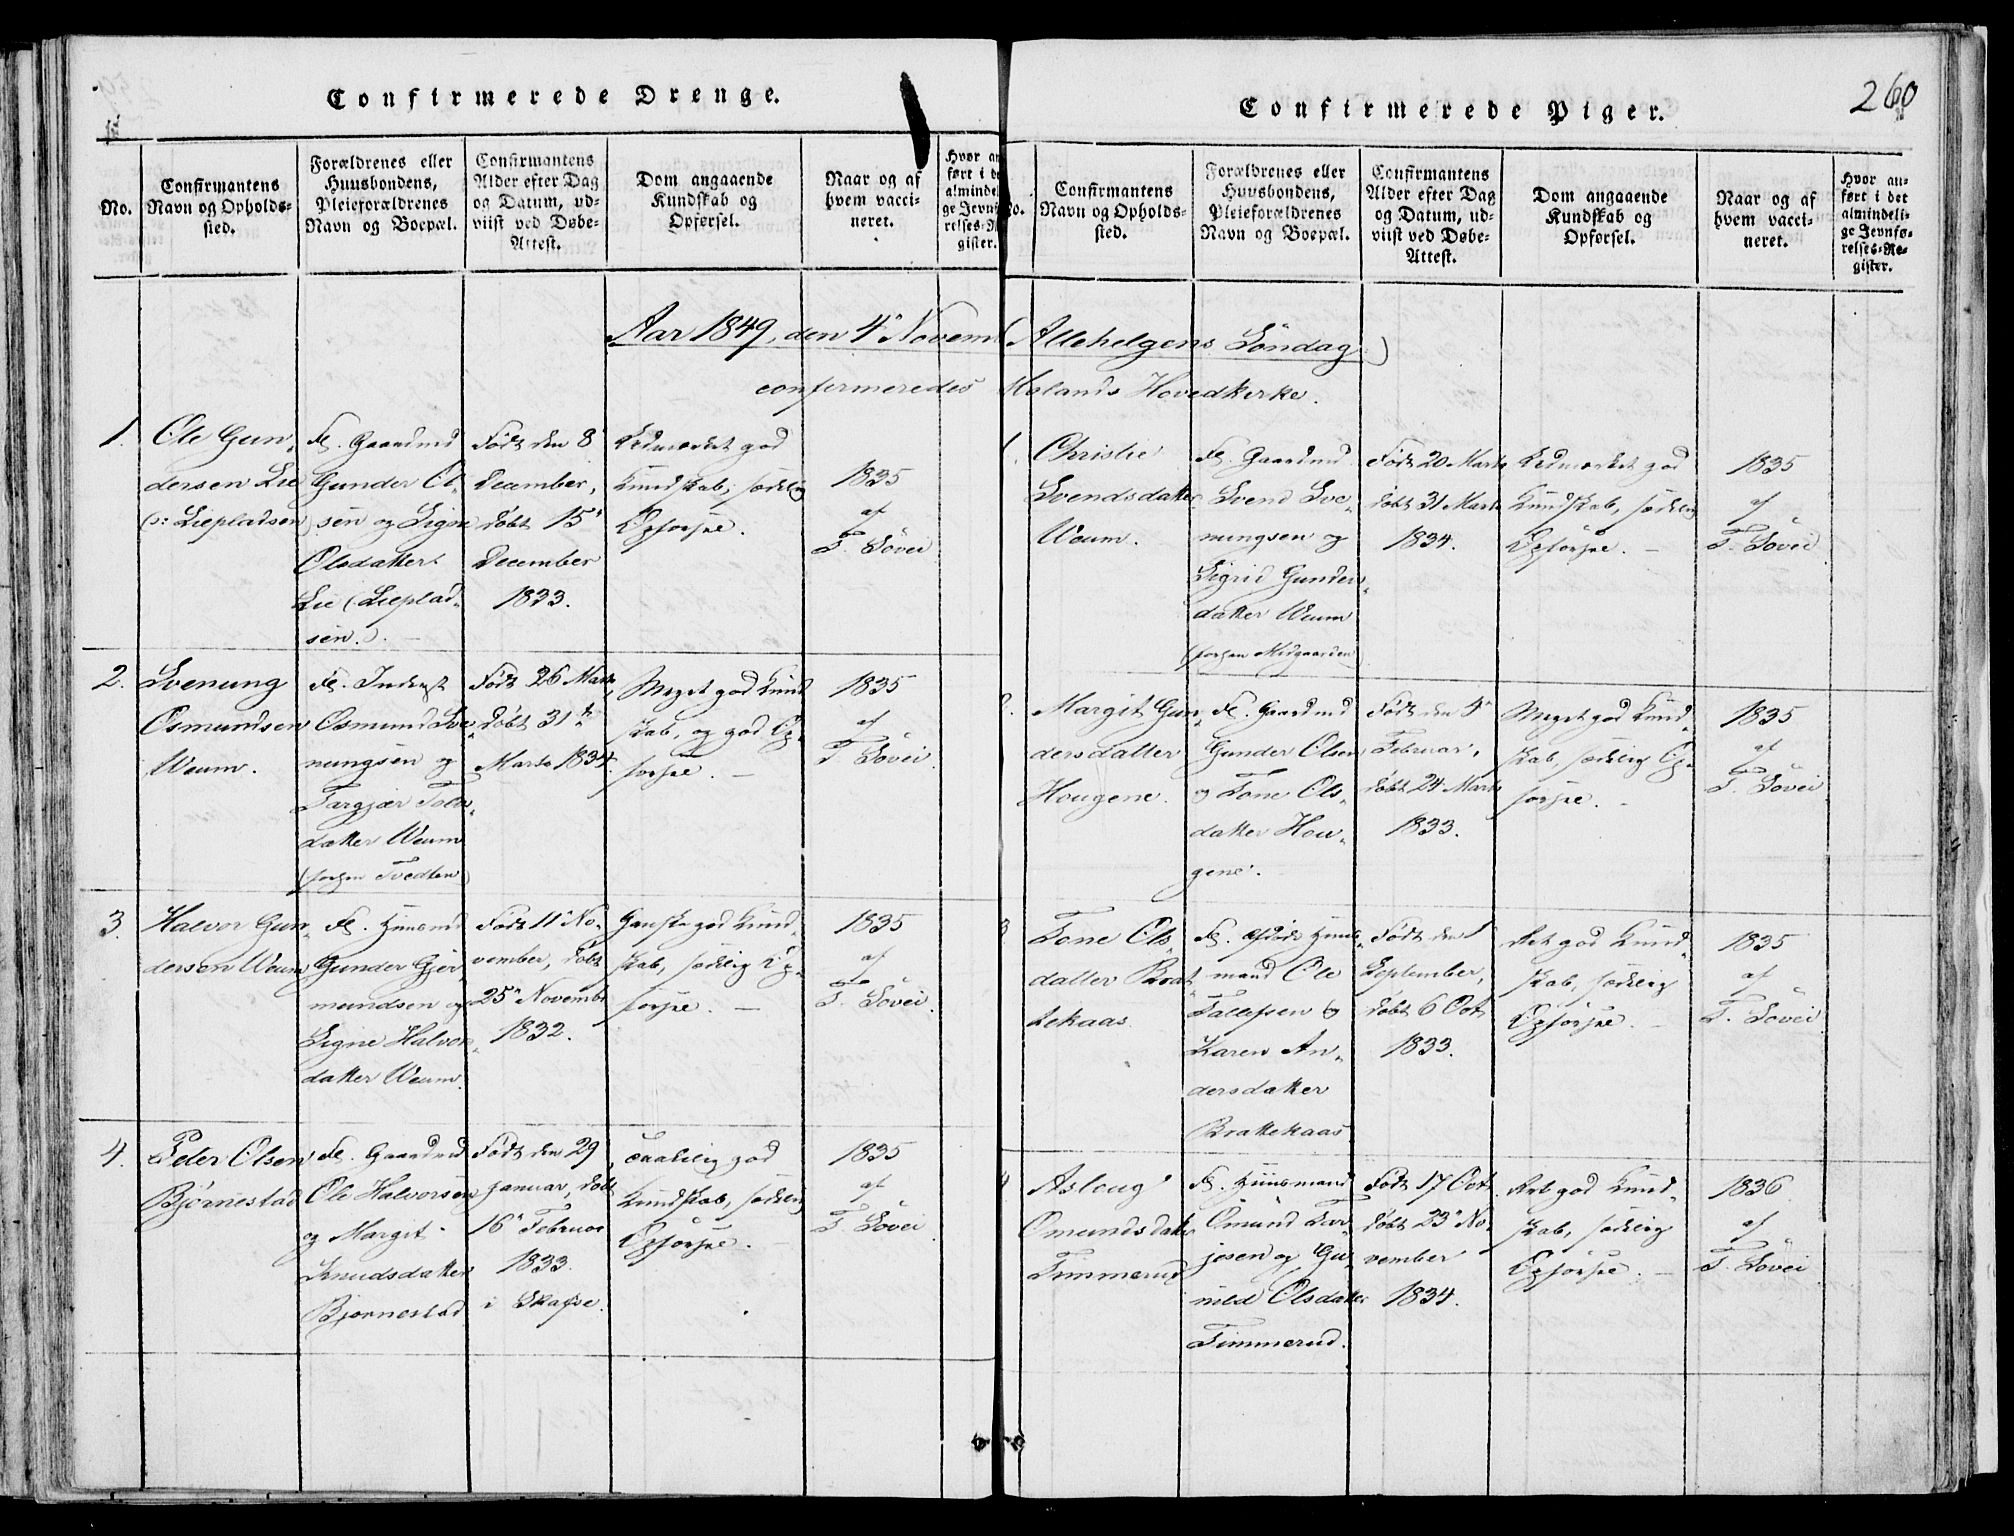 Confirmerede Drenge.
No.
Confirmantens
Navn og Opholds-
sted.
Forældrenes eller
Huusbondens,
Pleieforældrenes
Navn og Boepæl.
Confirmantens
Alder efter Dag
og Datum, ud-
viist ved Døbe-
Attest.
Dom angaaende
Kundskab og
Opførsel.
Naar og af
hvem vacci-
neret.
Hvor an
ført i de
almindel
ge Jevnf
relses-R
gister.
Aar 1849, den 4 Novemb
confirmeredes
1.
Ole Gun-
dersen Lie
(ɔ: Liepladsen)
F. Gaardmd
Gunder Ol-
sen og Signe
Olsdatter
Lie (Lieplad-
sen.)
Født den 8
December,
døbt 15
December
1833.
Udmærket god
Kundskab, sædelig
Opførsel.
1835
af
T. Søvei
2.
Svenung
Osmundsen
Weum.
F. Inderst
Osmund Sve-
nungsen og
Targjær Tols-
datter Weum
(forhen Tvedten)
Født 26 Marts,
døbt 31te
Marts 1834.
Meget god Kund-
skab, og god Op-
førsel.
1835
af
T. Søvei
3.
Halvor Gun-
dersen Weum
F. Huusmd
Gunder Gjer-
mundsen og
Signe Halvors-
datter Weum.
Født 11 No-
vember, døbt
25 Novembr
1832.
Ganske god Kund-
skab, sædelig Op-
førsel.
1835
af
T. Søvei.
4.
Peder Olsen
Bjørnestad
F. Gaardmd
Ole Halvorsen
og Margit
Knudsdatter
Bjørnestad
Født den 29
Januar, døbt
16 Februar
1833.
i Skafse.
Taalelig god
Kundskab, sædelig
Opførsel.
1835
af
T. Søvei
Confirmerede Piger.
260
No.
Confirmantens
Navn og Opholds-
sted.
Forældrenes eller
Huusbondens,
Pleieforældrenes
Navn og Boepæl.
Confirmantens
Alder efter Dag
og Datum, ud-
viist ved Døbe-
Attest.
Dom angaaende
Kundskab og
Opførsel.
Naar og af
hvem vacci-
neret.
Hvor an-
ført i det
almindeli-
ge Jevnfø-
relses-Re-
gister.
(Allehelgens Söndag)
Molands Hovedkirke.
1.
Christie
Svendsdatter
Weum.
F. Gaardmd
Svend Sve-
nungsen og
Sigrid Gunders-
datter Weum
(forhen Midgaarden)
Født 20 Marts
døbt 31 Marts
1834.
Udmærket god
Kundskab, sædelig
Opførsel.
1835
af
T. Søvei
2.
Margit Gun-
dersdatter
Hougene.
F. Gaardmd
Gunder Olsen
og Tone Ols-
datter Hou-
gene.
Født den 4
Februar,
døbt 24 Marts
1833.
Meget god Kund-
skab, sædelig Op-
førsel.
1835
af
T. Søvei
3
Tone Ols-
datter Brat-
tekaas.
F. afdøde Huus-
mand Ole
Tallefsen og
Karen An-
dersdatter
Brattekaas
Født den 1
September,
døbt 6 Oct.
1833.
Ret god Kund-
skab, sædelig
Opførsel.
1835
af
T. Søvei
4
Aslaug
Omundsdatter
Timmerud
F. Huusmand
Omund Tar-
jesen og Gu-
nild Olsdatter
Timmerud.
Født 17 Oct.
døbt 23 No-
vember
1834.
Ret god Kund-
skab, sædelig
Opførsel.
1836.
af
T. Søvei